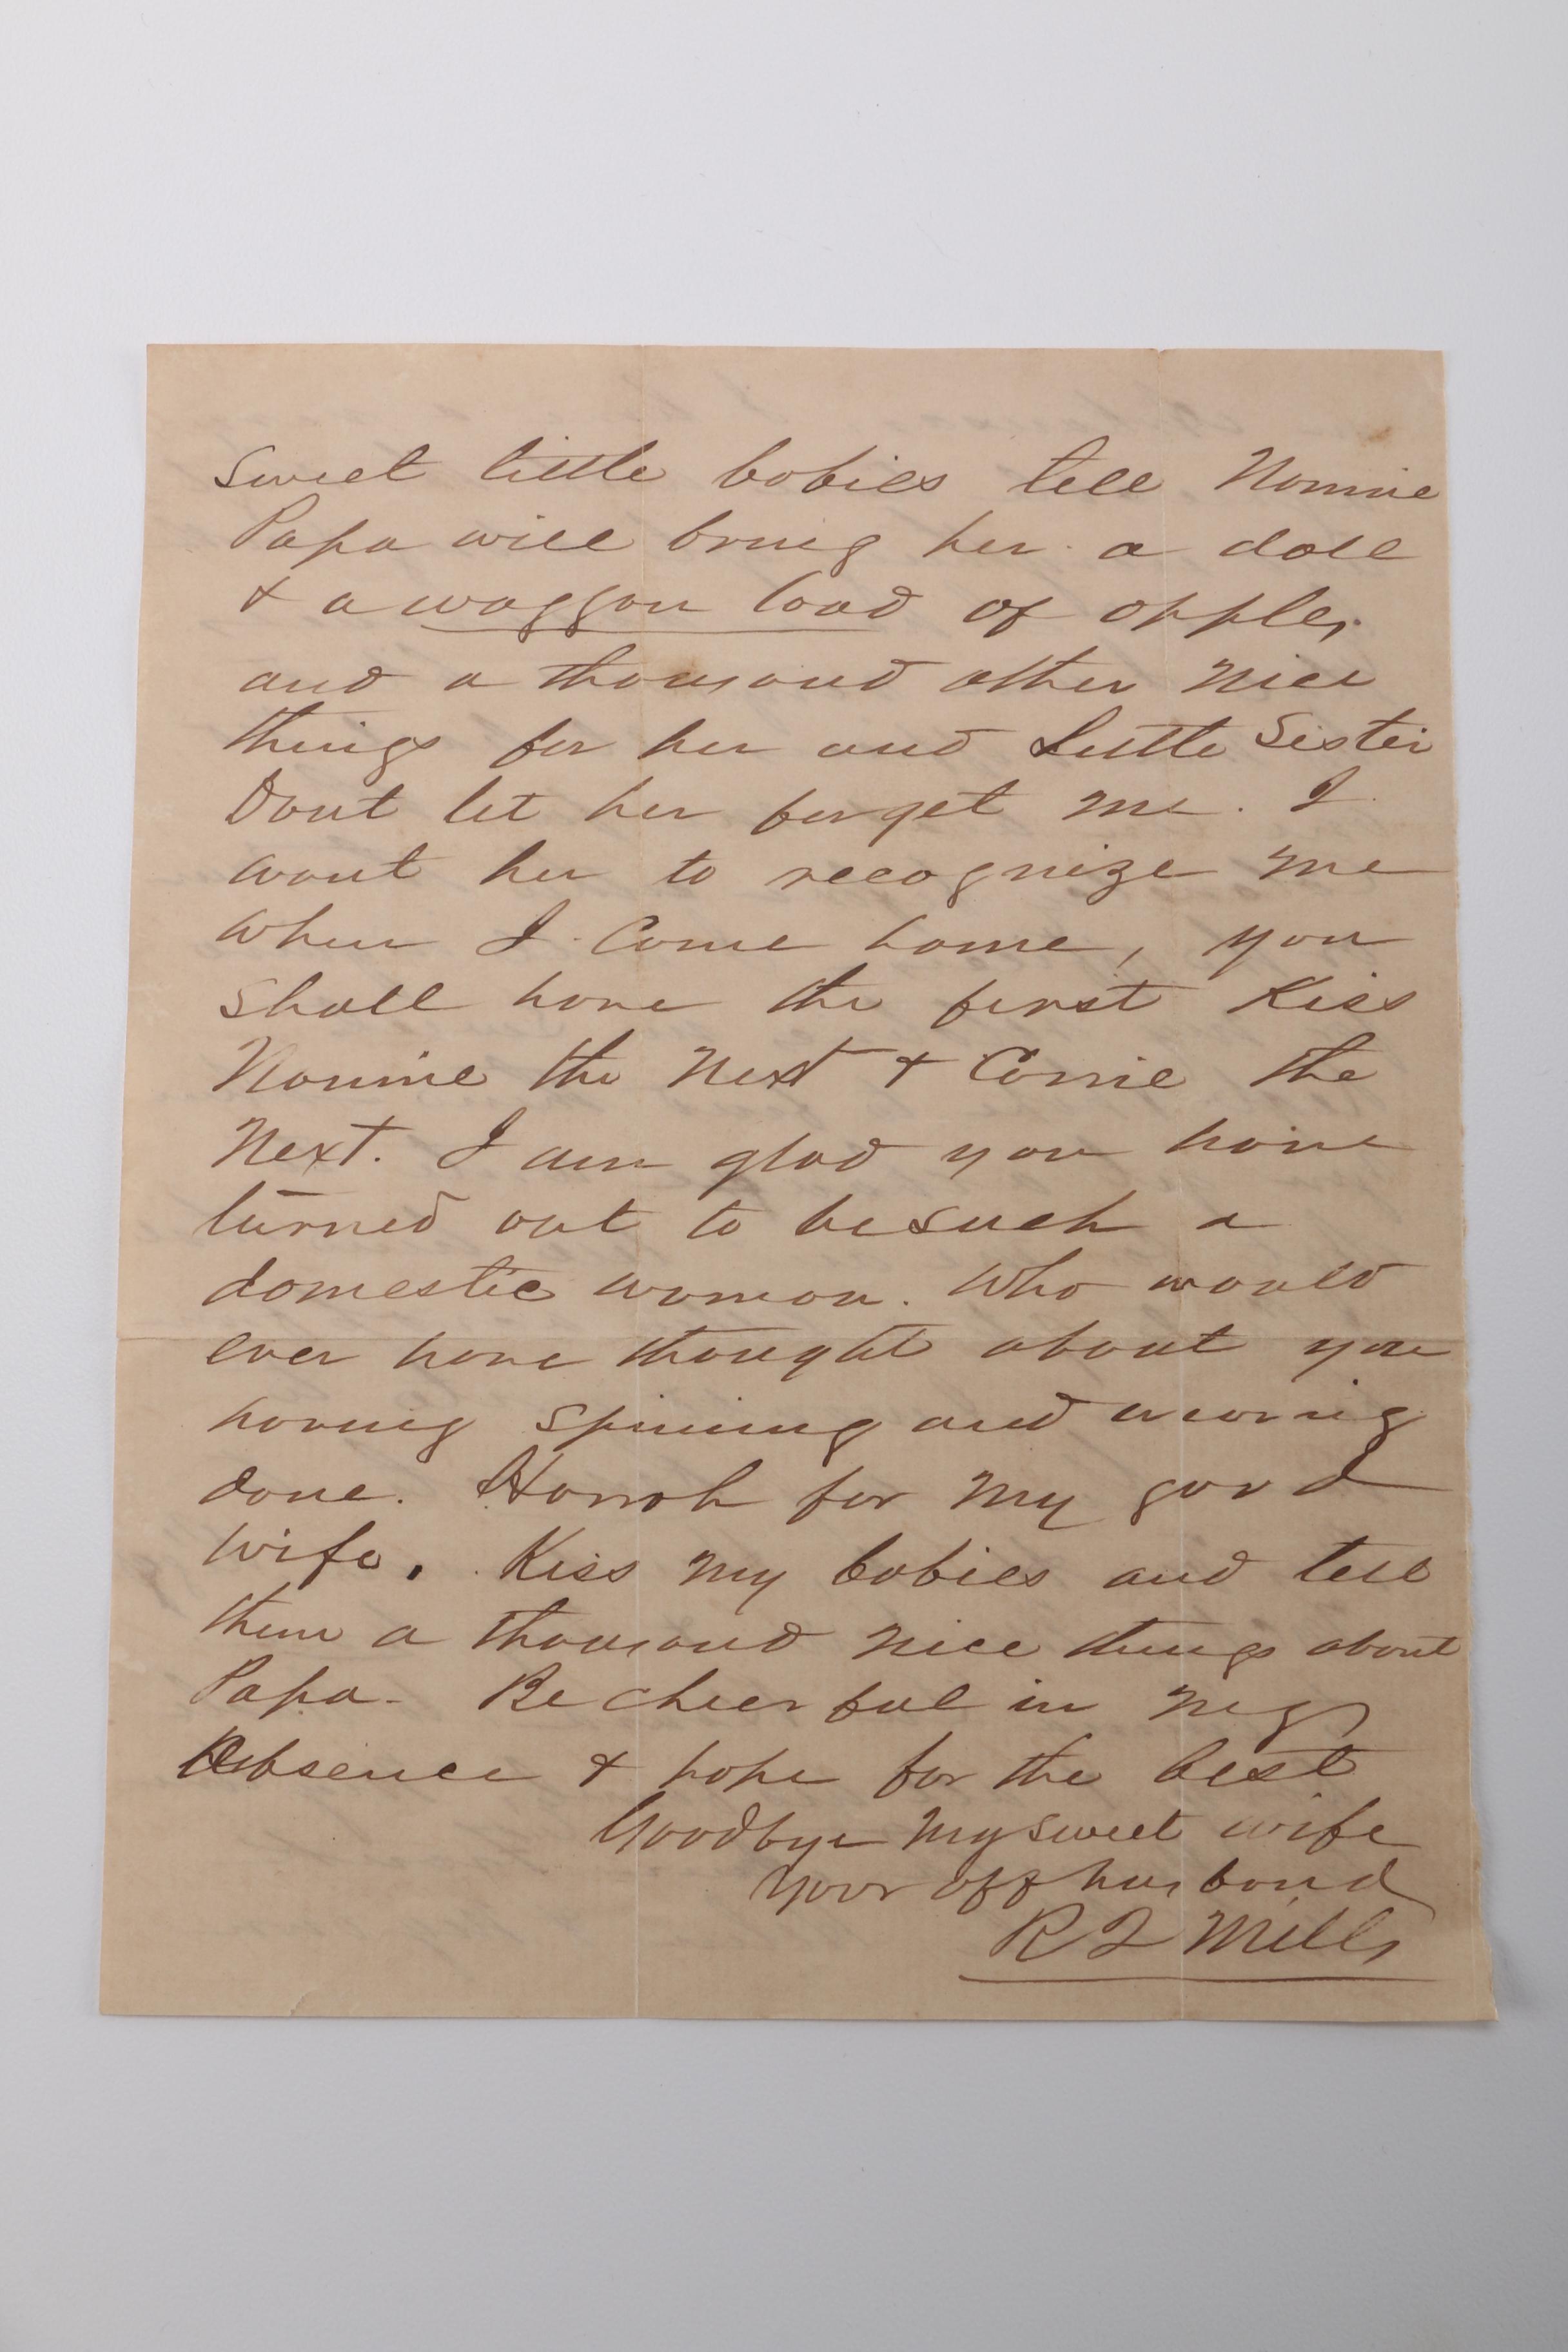 Sweet little babies tell Nannie
Papa will bring her a doll
& a waggon load of apples
and a thousand other nice
things for her and Little Sister
Dont let her forget me. I
want her to recognize me
when I come home, you
shall have the first Kiss
Nannie the next & Corrie the
next. I am glad you have
turned out to be such a
domestic woman. Who would
ever have thought about you
having spinning and weaving
done. Horrah for my good
wife. Kiss my babies and tell
them a thousand nice things about
Papa - Be cheerful in my
Absence & hope for the best
Goodbye my sweet wife
Your aff husband
R Q Mills